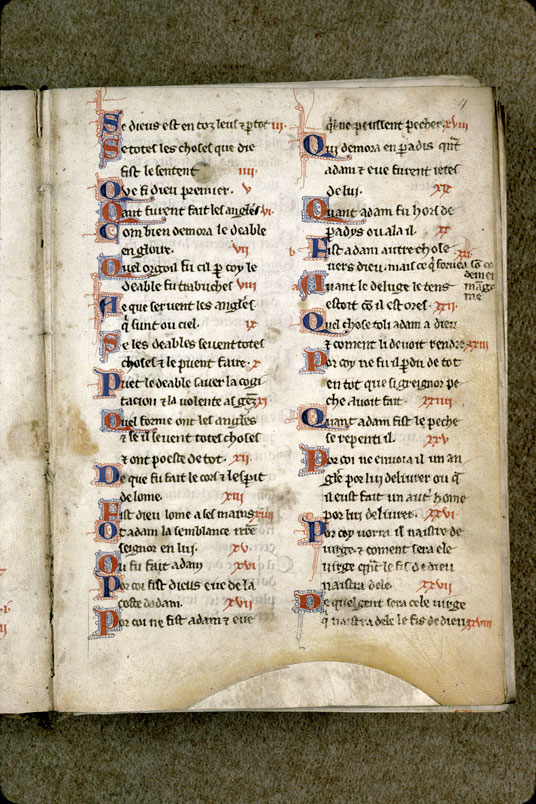 Se dieus est en toz leus & ptot iii·
Se totes les choses que die
fist le sentent iiii·
Que fi dieu premier· v
Quant furent fait les angles· vi·
Com bien demora le deable
en gloire· vii
Quel orgoil fu cil p coy le
deable fu trabuches viii
Ne que servent les angles·
q̃ sunt ou ciel· ix
Se les deables sevent totes
choses & le puent faire· x
Puet le deable saver la cogi
tacion & la volente as gẽz xi
Quel forme ont les angles
& se il sevent totes choses
& ont poeste de tot· xii·
De que fu fait le cors & lespit
de lome· xiii
Fist dieu lome a ses mains xiiii
Ot adam la semblance nr̃e
seignor en lui· xv·
Ou fu fait adam xvi
Por coi fist dieus eve de la
coste dadam· xvii
Por coi ne fist adam & eve
4
q̃l ne peussent pecher· xviii
Qui demora en paradis q̃nt
adam & eve furent ietes
de lui· xix
Quant adam fu hors de
paradys ou ala il· xx
b Fist adam autre chose
vers dieu· mais ce q̃ xxi·
a Avant le deluge le tens
estoit cõ il est ores· xxii·
Quel chose toli adam a dieu
& coment li devoit rendre xxiii
Por coy ne fu il pdu de tot
en tot que si greignor pe
che avoit fait· xxiiii
Quant adam fist le peche
se repenti il· xxv
Por coi ne envoia il un an
gle por lui delivrer ou q̃
il eust fait un autre home
por lui delivrer· xxvi·
Por coy vorra il naistre de
virge· & coment sera ele
virge q̃nt le fis de dieu
naistra dele· xxvii
De quel gent sera cele virge
q̃ naistra dele le fis de dieu xxviii